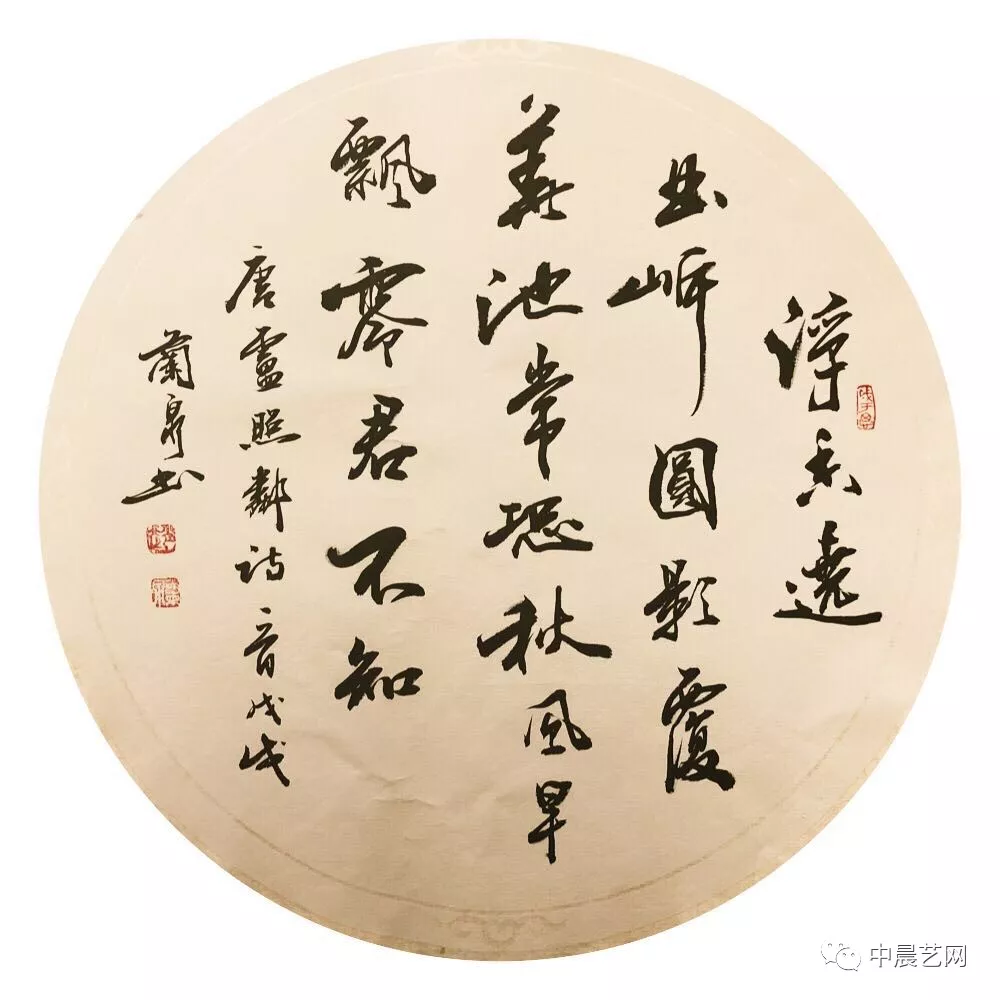 浮香遶
曲岸圓影覆
華池常恐秋風早
飄零君不知
唐盧照鄰詩一首戊戌
蘭泉書
中晨艺网